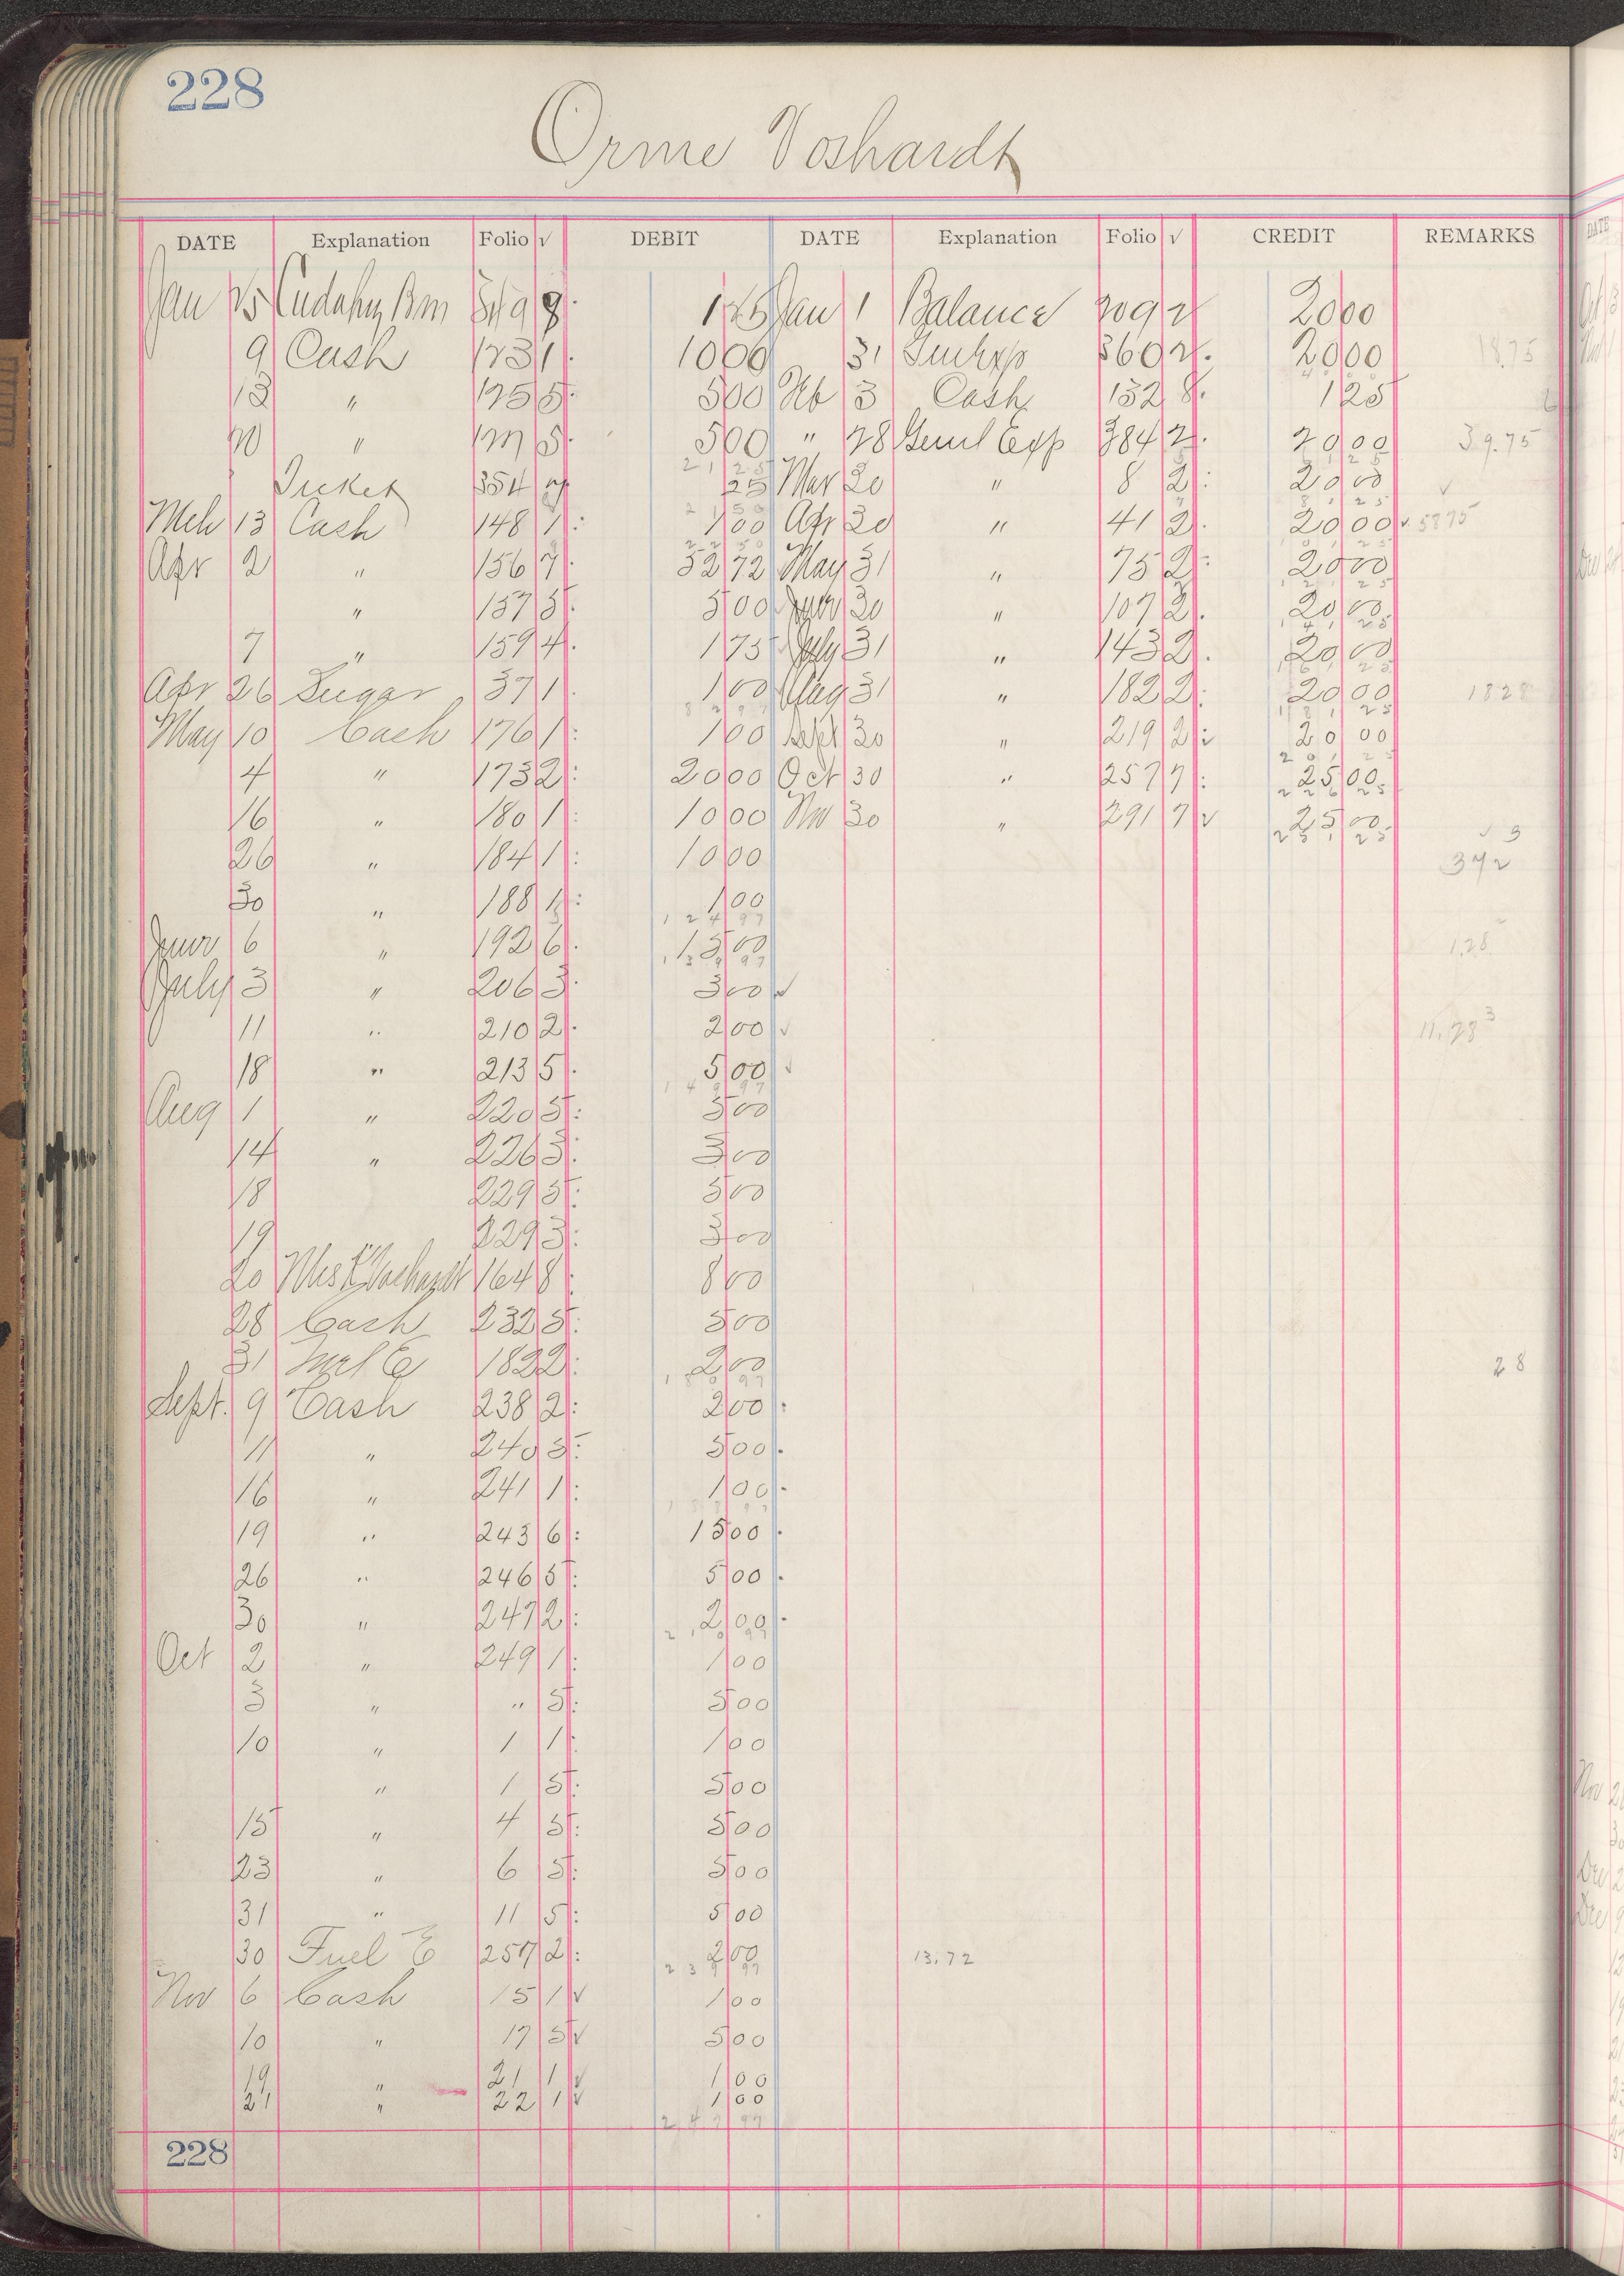 228
Orme Voshardt
DATE Explanation Folio √ DEBIT DATE Explanation Folio √ CREDIT REMARKS
Jan 25 Cudahy 349 8 1 25 Jan 1 Balance 209 2 20 00
9 Cash 123 1 10 00 31 360 2 20 00 18.75
13 " 125 5 5 00 Feb 3 Cash 132 8 1 25
20 " 127 5 5 00 " 28 Genl Exp 384 2 20 00 39.75
Ticket 354 25 Mar 30 " 8 2 20 00
Mch 13 Cash 148 1 1 00 Apr 30 " 41 2 20 00 √ 5875
Apr 2 " 156 7 32 72 May 31 " 75 2 20 00
" 157 5 5 00 June 30 " 107 2 20 00
7 " 159 4 1 75 July 31 " 143 2 20 00
Apr 26 Sugar 37 1 1 00 Aug 31 " 182 2 20 00 1828
May 10 Cash 176 1 1 00 Sept 30 " 219 2 20 00
4 " 173 2 20 00 Oct 30 " 257 7 25 00
16 " 180 1 10 00 Nov 30 " 291 7 √ 25 00
26 " 184 1 10 00 372
30 " 188 1 1 00
1 2 4 97
June 6 " 192 6 15 00
1 3 9 97
July 3 " 206 3 3 00 √
11 " 210 2 2 00 √
18 " 213 5 5 00 √
1 4 9 97
Aug 1 " 220 5 5 00
14 " 226 3 3 00
18 229 5 5 00
19 229 3 3 00
20 Voshardt 164 8 8 00
28 Cash 232 5 5 00
31 182 2 2 00 28
Sept. 9 Cash 238 2 2 00
11 " 240 5 5 00
16 " 241 1 1 00
19 " 243 6 15 00
26 " 246 5 5 00
30 " 247 2 2 00
Oct 2 " 249 1 1 00
3 " " 5 5 00
10 " 1 1 1 00
" 1 5 5 00
15 " 4 5 5 00
23 " 6 5 5 00
31 " 11 5 5 00
30 Fuel E 257 2 2 00 13.72
2 3 9 97
Nov 6 Cash 15 1 √ 1 00
10 " 17 5 √ 5 00
19 " 21 1 √ 1 00
21 " 22 1 √ 1 00
2 4 7 97
228